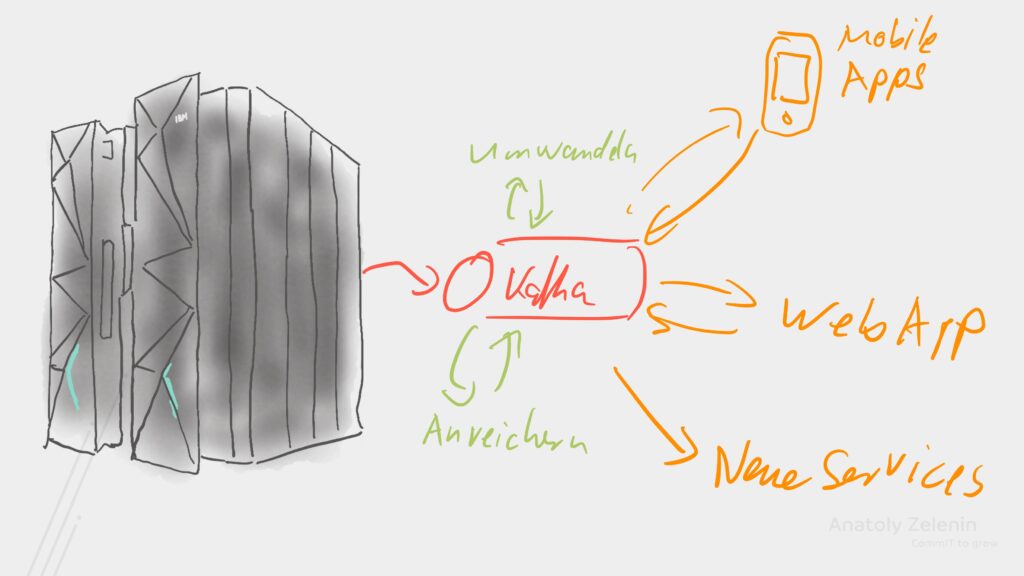 IBM
Mobile
Apps
Umwandeln
Kafka
WebApp
Anreichern
Neue Services
Anatoly Zelenin
CommIT to grow